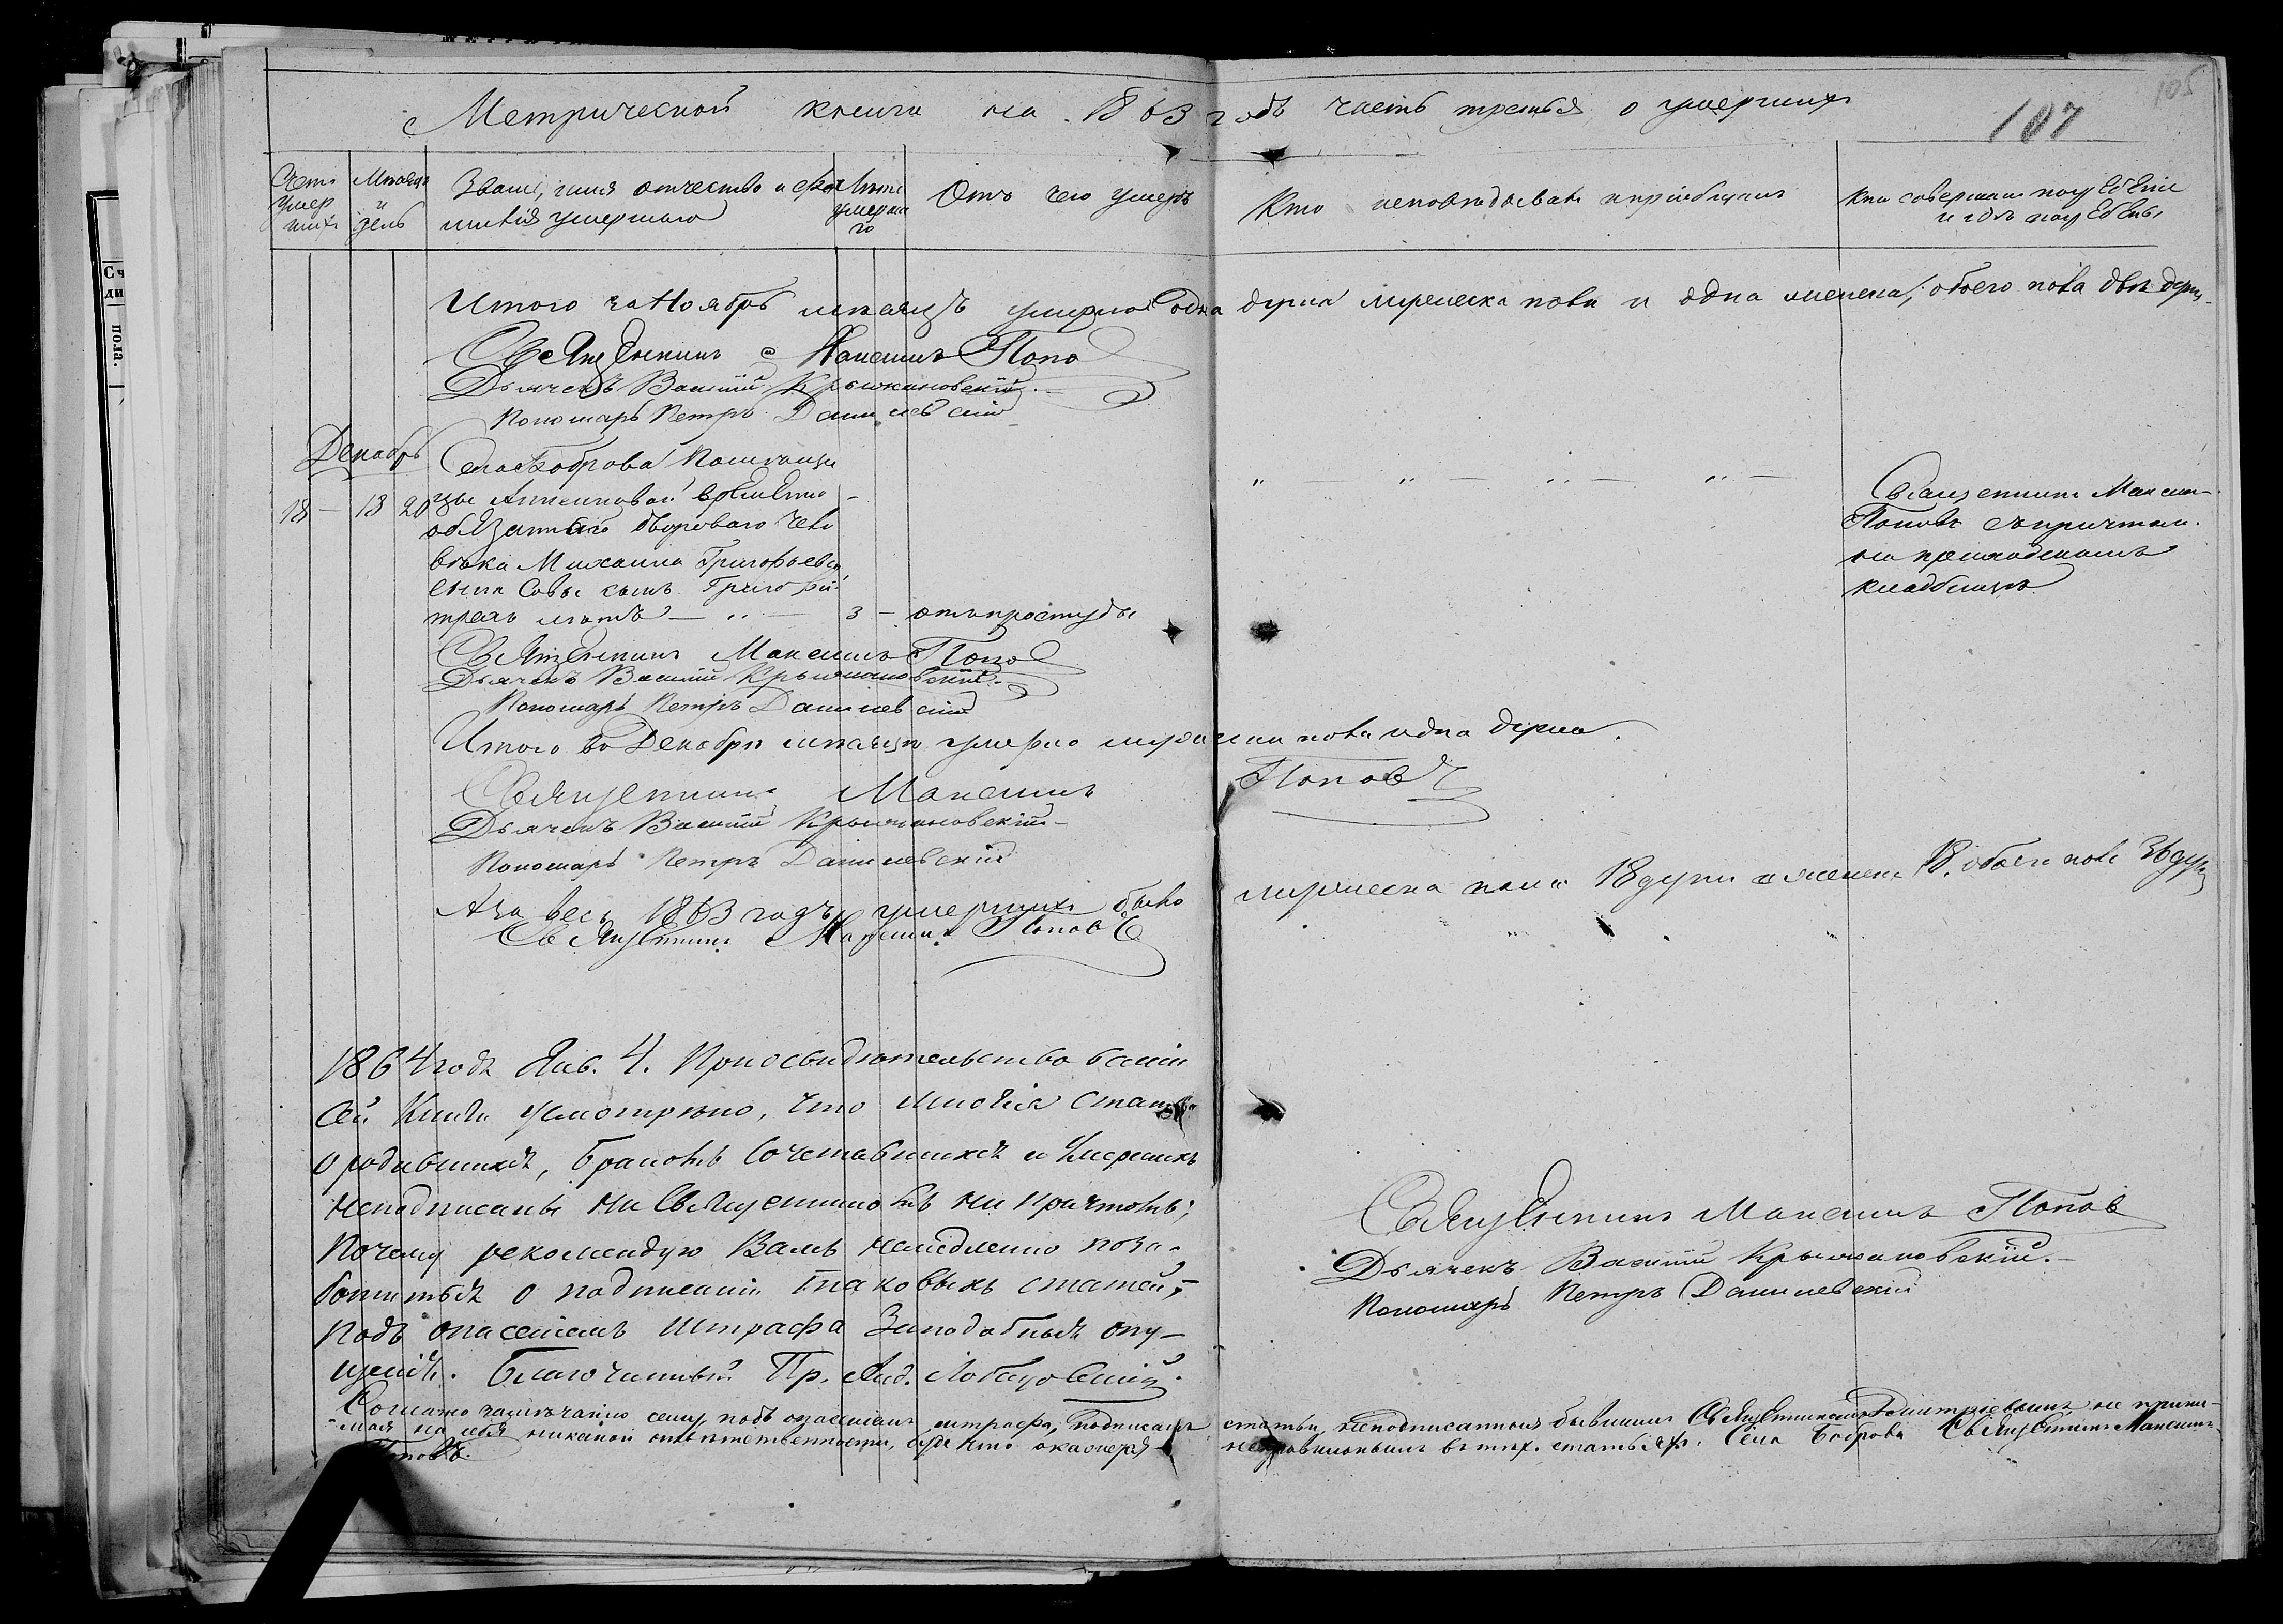 105
107
Метрической книги на 1863 годъ часть третья о умершихъ
Счетъ умер шихъ
Мѣсяцъ и день
Званіе, имя отчество и фа милія умершаго
Лѣта умерша го
Отъ чего умеръ
Кто исповѣдывалъ и пріобщалъ
Кто совершалъ погребеніе и гдѣ погребены
Итого за Ноябрь мѣсяцъ умерло одна душа мужеска пола и одна женска, обоего пола двѣ души
Священникъ Максимъ Попо
Дьячекъ Василій Крыжановскій.
Пономарь Петръ Данилевскій
Декабрь
Села Боброва
18 — 18 20
временно
обязаннаго двороваго чело
вѣка Михаила Григорьева
сына Совы сынъ Григорій
трехъ лѣтъ — „ — 3 — отъ простуды
Священникъ Максимъ
Поповъ съ причтомъ
на приходскомъ
кладбищѣ
Священникъ Максимъ Попо
Дьячекъ Василій Крыжановскій.
Пономарь Петръ Данилевскій
Итого въ Декабрѣ мѣсяцѣ умерло мужеска пола одна душа.
Священникъ Максимъ Поповъ
Дьячекъ Василій Крыжановскій
Пономарь Петръ Данилевскій
А за весь 1863 годъ умершихъ было мужеска пола 18 душъ и женска 18. обоего пола 36 душъ
Священникъ Максимъ Поповъ
1864 года Янв. 4. По освидѣтельствованіи
сей Книги усмотрѣно, что многія статьи
о родившихся, бракомъ сочетавшихся и умершихъ
неподписаны ни Священникомъ ни Причтомъ;
Почему рекомендую Вамъ немедленно поза-
ботиться о подписаніи таковыхъ статей,
подъ опасеніемъ штрафа за подобныя опу-
щенія. Благочинный Пр.
Священникъ Максимъ Поповъ
Дьячекъ Василій Крыжановскій.
Пономарь Петръ Данилевскій
Согласно замѣчанію сему, подъ опасеніемъ штрафа, подписалъ статьи, неподписанныя бывшимъ Священникомъ Дмитріевымъ не прини-
мая на себя никакой отвѣтственности, буде что окажется неправильнымъ въ тѣхъ статьяхъ. Села Боброва Священникъ Максимъ
Поповъ.
Сч
ди
пола.